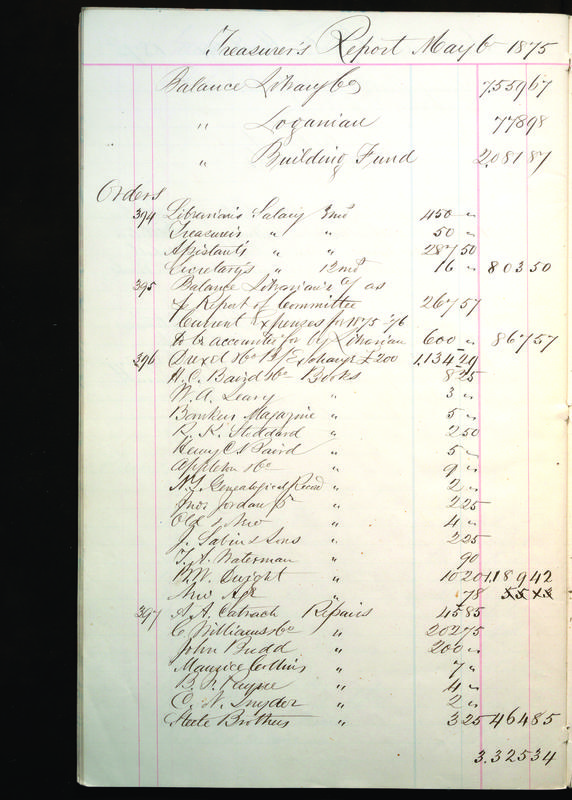 Treasurer's Report May 6 1875
Balance Library Co 7559 67
" Loganian 778 98
" Building Fund 2,081 87
Orders
394 Librarian's Salary 3 mos 450 "
Treasurer's " " 50 "
Assistant's " " 287 50
Secretary's " 12 mos 16 " 803 50
395 Balance Librarian's % as
pr Report of Committee 267 57
Current Expenses for 1875 & 76
to be accounted for by Librarian 600 " 867 57
396 Drexel & Co B/Exchange £200 1,134 29
H. C. Baird & Co Books 8 25
W. A. Leary " 3 "
Bankers Magazine " 5 "
R. K. Stoddard " 2 50
Henry C. Baird " 5 "
Appleton & Co " 9 "
N.Y. Genealogical Record " 2 "
Jno. Jordan Jr " 2 25
Old & New " 4 "
J. Sabin & Sons " 2 25
T. A. Waterman " 90
B. W. Dwight " 10 20 1,189 42
New Age " 78
397 A. A. Catrach Repairs 45 85
C. Williams & Co " 202 75
John Budd " 200 "
Maurice Collins " 7 "
B. F. Payne " 4 "
C. N. Snyder " 2 "
Steele Brothers " 3 25 464 85
3.325 34